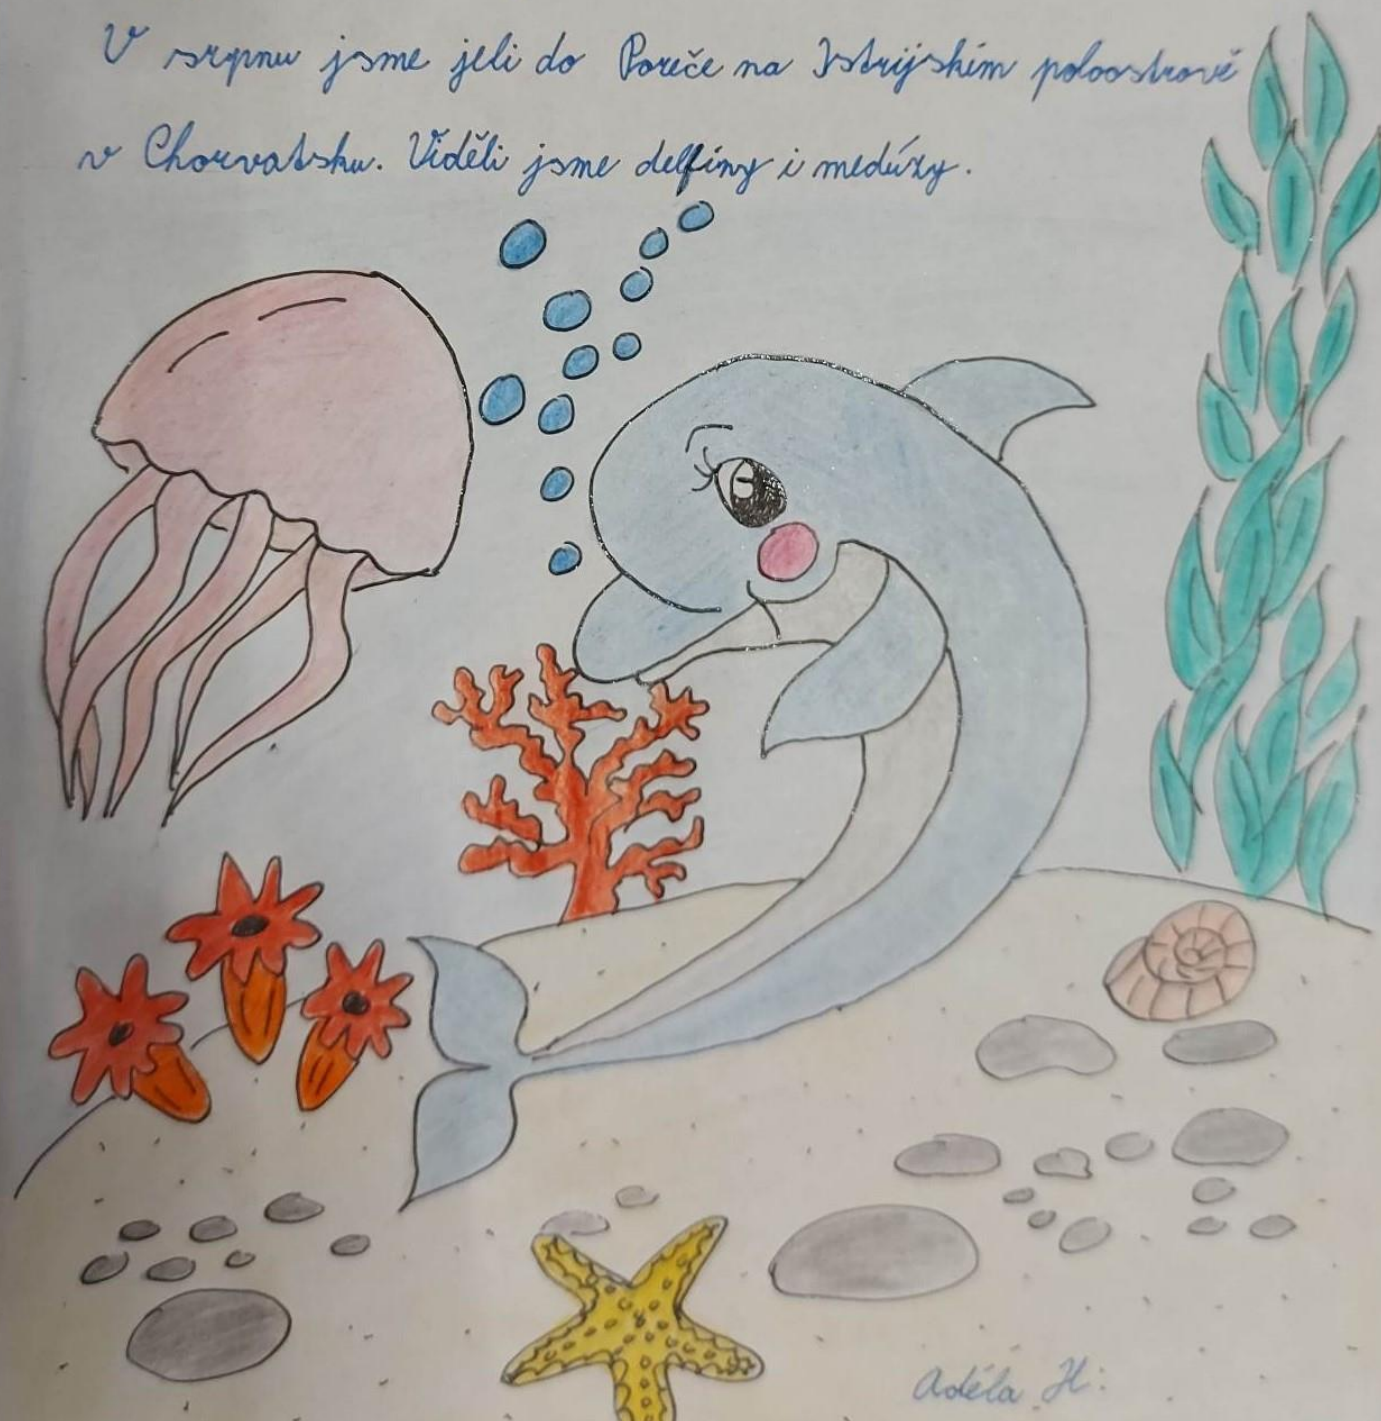 V srpnu jsme jeli do Poreče na Istrijském poloostrově
v Chorvatsku. Viděli jsme delfíny i medúzy.
Adéla H.